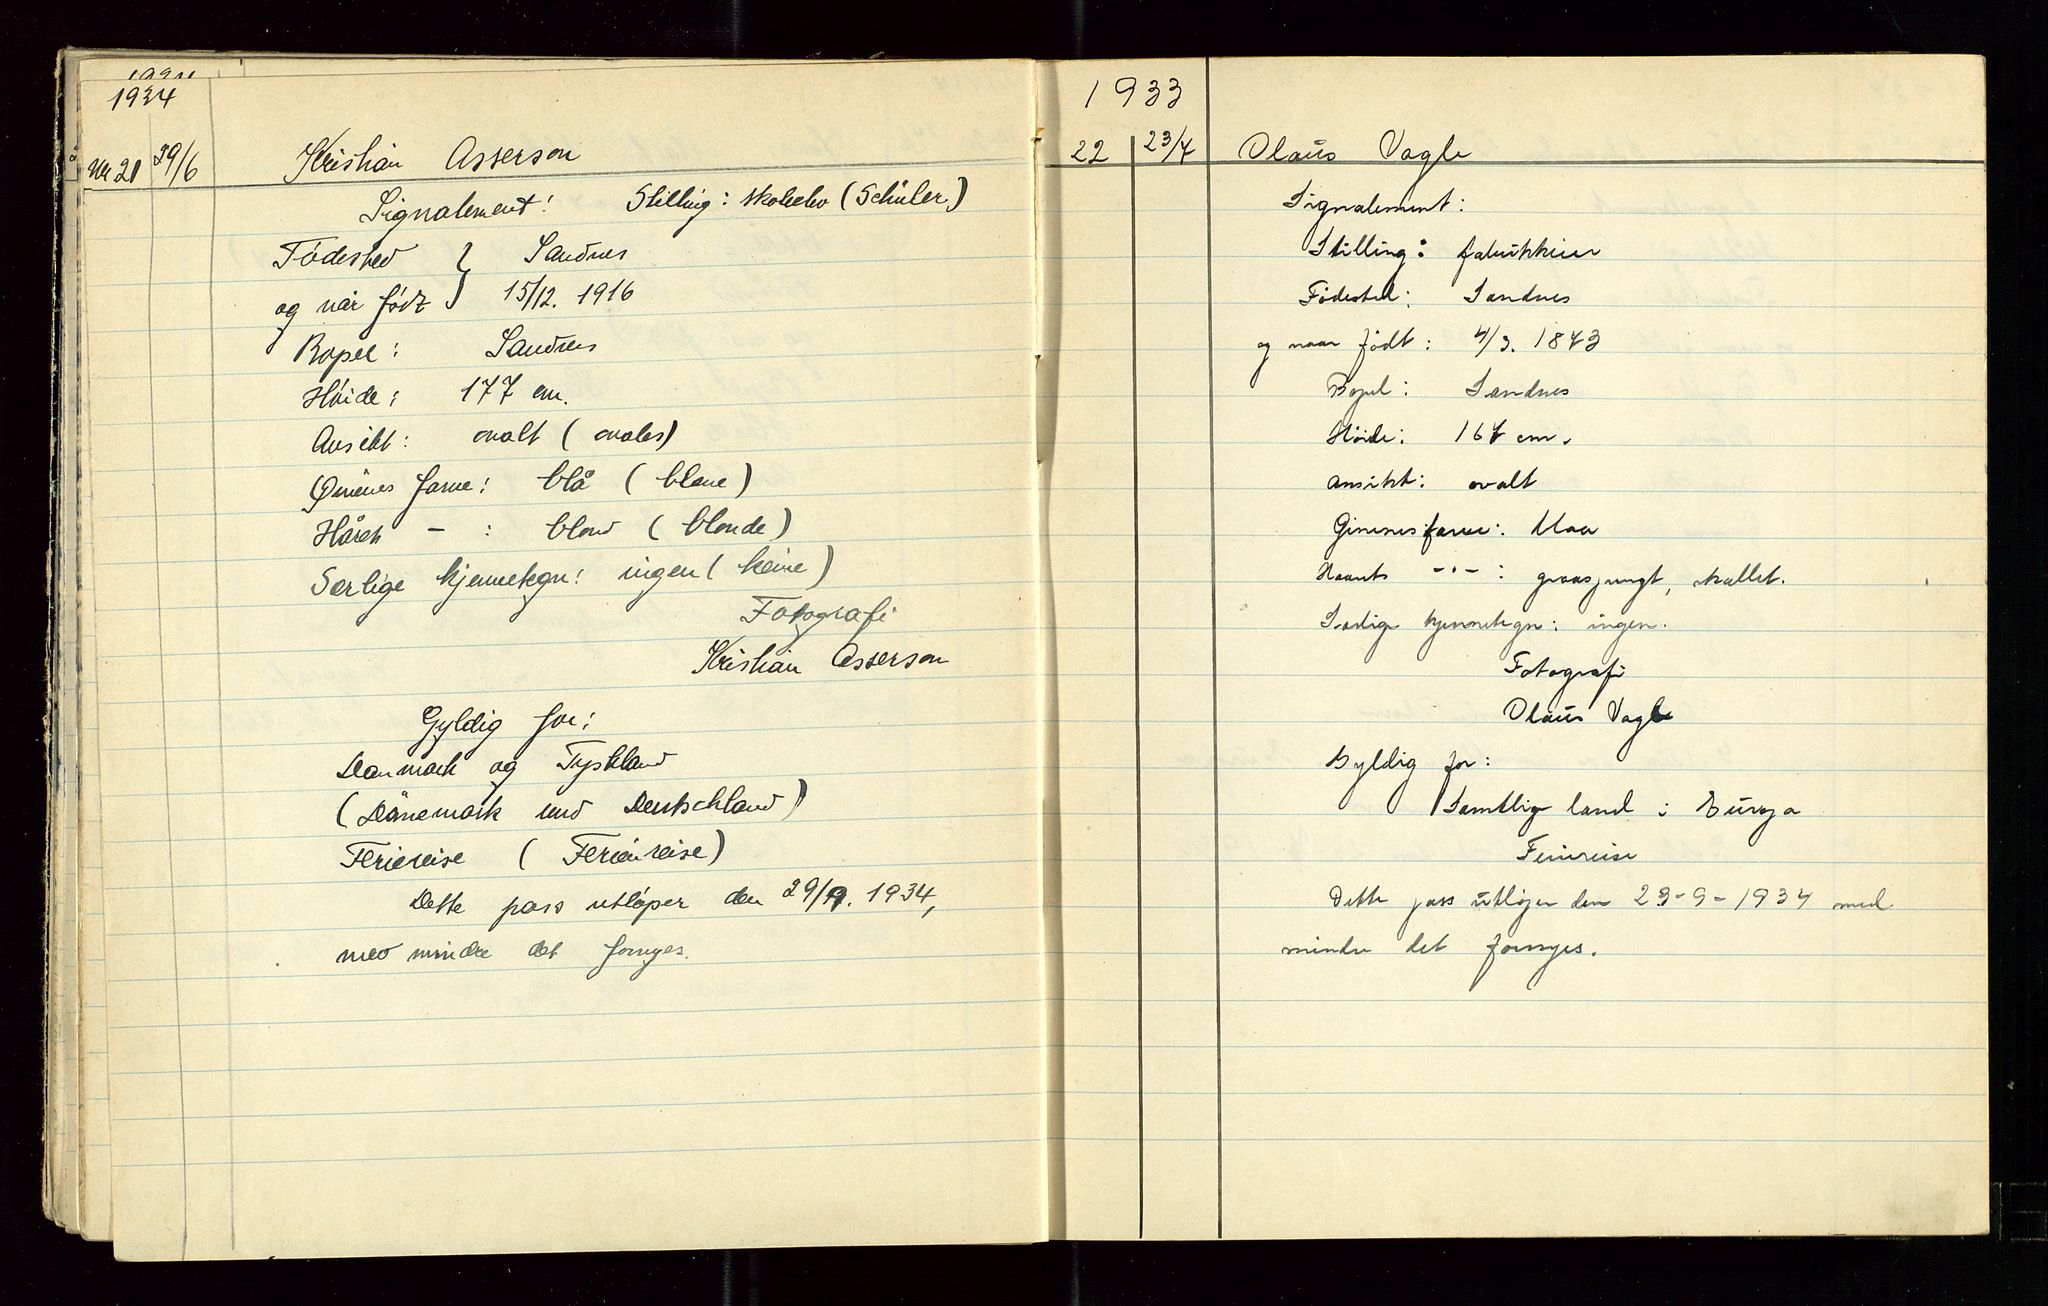 1934
1934
Nr 21 29/6 Kristian Asserson
Signalement: Stilling: skoleelev (Schüler)
Fødested } Sandnes
og når født } 15/12. 1916
Bopel: Sandnes
Høide: 177 cm.
Ansikt: ovalt (ovales)
Øinenes farve: blå (blaue)
Hårets - : blond (blonde)
Særlige kjennetegn: ingen (keine)
Fotografi
Kristian Asserson
Gyldig for:
Danmark og Tyskland
(Dänemark und Deutschland)
Feriereise (Ferienreise)
Dette pass utløper den 29/9. 1934,
med mindre det fornyes.
1933
22 23/7 Olaus Vagle
Signalement:
Stilling: fabrikkeier
Fødested: Sandnes
og naar født: 4/3. 1873
Bopel: Sandnes
Høide: 167 cm.
Ansikt: ovalt
Øinenes farve: blaa
Haarets -"- : graasprengt, skallet.
Særlige kjennetegn: ingen.
Fotografi
Olaus Vagle
Gyldig for:
Samtlige land i Europa
Feriereise
Dette pass utløper den 23-9-1934 med
mindre det fornyes.